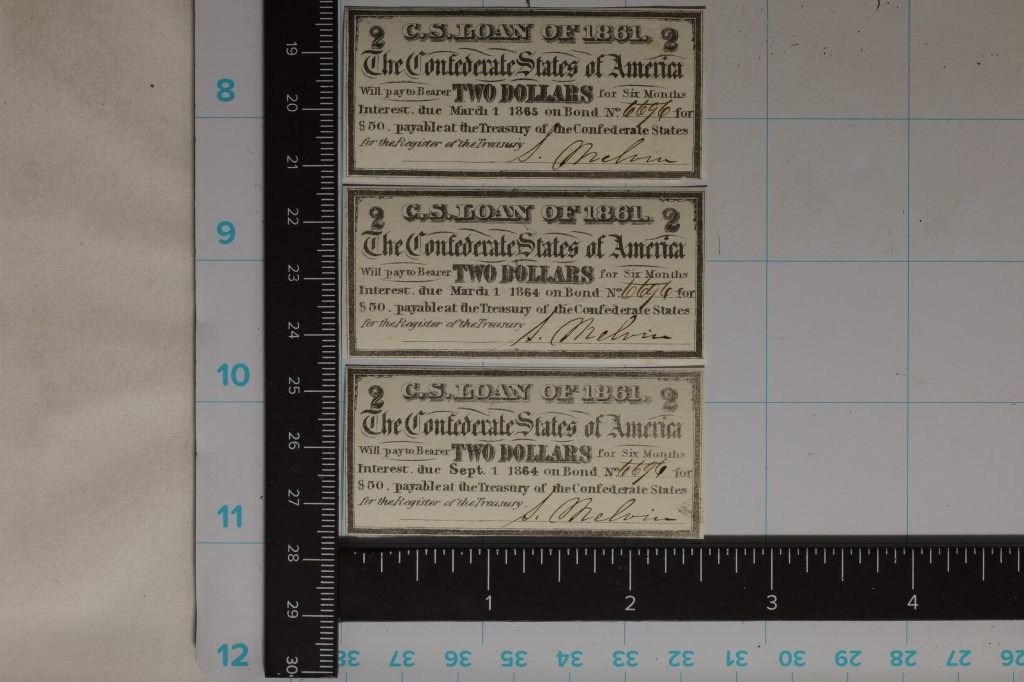 2 C.S. LOAN OF 1861. 2
The Confederate States of America
Will pay to Bearer TWO DOLLARS for Six Months
Interest. due March 1 1865 on Bond No. 6696 for
$50. payable at the Treasury of the Confederate States
for the Register of the Treasury S. Melvin
2 C.S. LOAN OF 1861. 2
The Confederate States of America
Will pay to Bearer TWO DOLLARS for Six Months
Interest. due March 1 1864 on Bond No. 6696 for
$50. payable at the Treasury of the Confederate States
for the Register of the Treasury S. Melvin
2 C.S. LOAN OF 1861. 2
The Confederate States of America
Will pay to Bearer TWO DOLLARS for Six Months
Interest. due Sept. 1 1864 on Bond No. 6696 for
$50. payable at the Treasury of the Confederate States
for the Register of the Treasury. S. Melvin
8
9
10
11
12
19
20
21
22
23
24
25
26
27
28
29
30
1 2 3 4
38 37 36 35 34 33 32 31 30 29 28 27 26